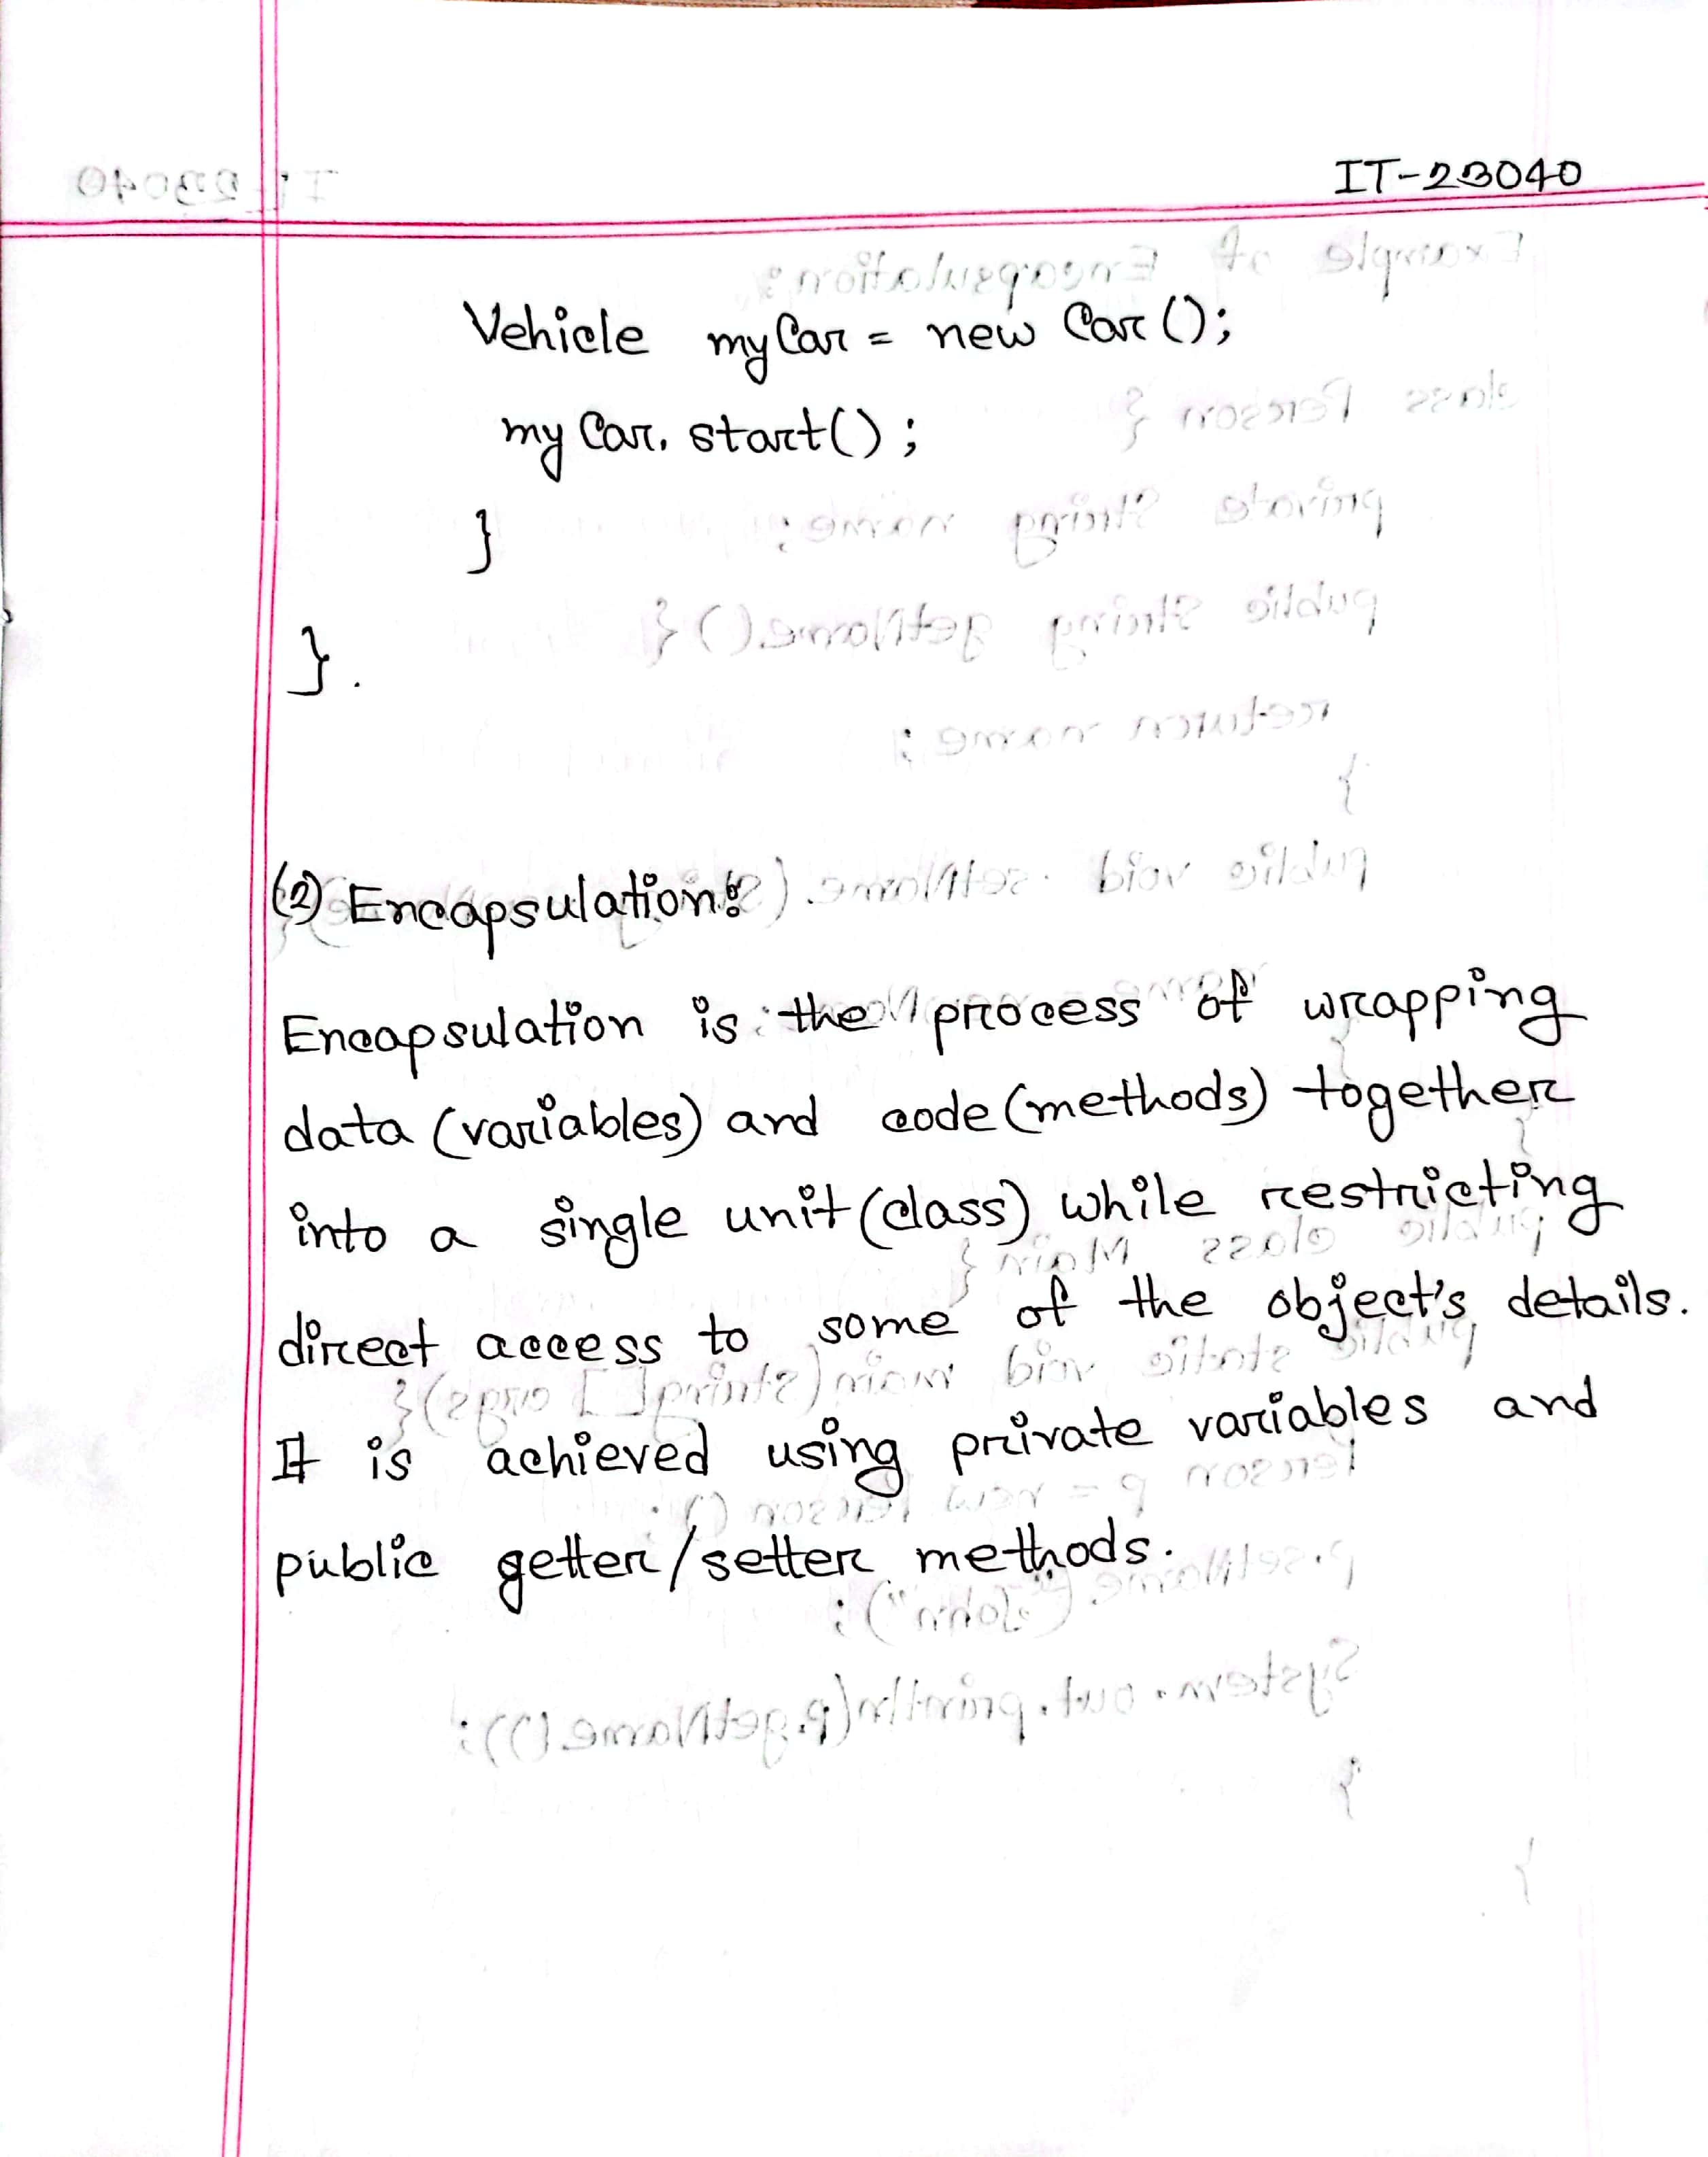 IT-23040
Vehicle myCar = new Car();
myCar.start();
}
}.
(2) Encapsulation:
Encapsulation is the process of wrapping
data (variables) and code (methods) together
into a single unit (class) while restricting
direct access to some of the object's details.
It is achieved using private variables and
public getter/setter methods.